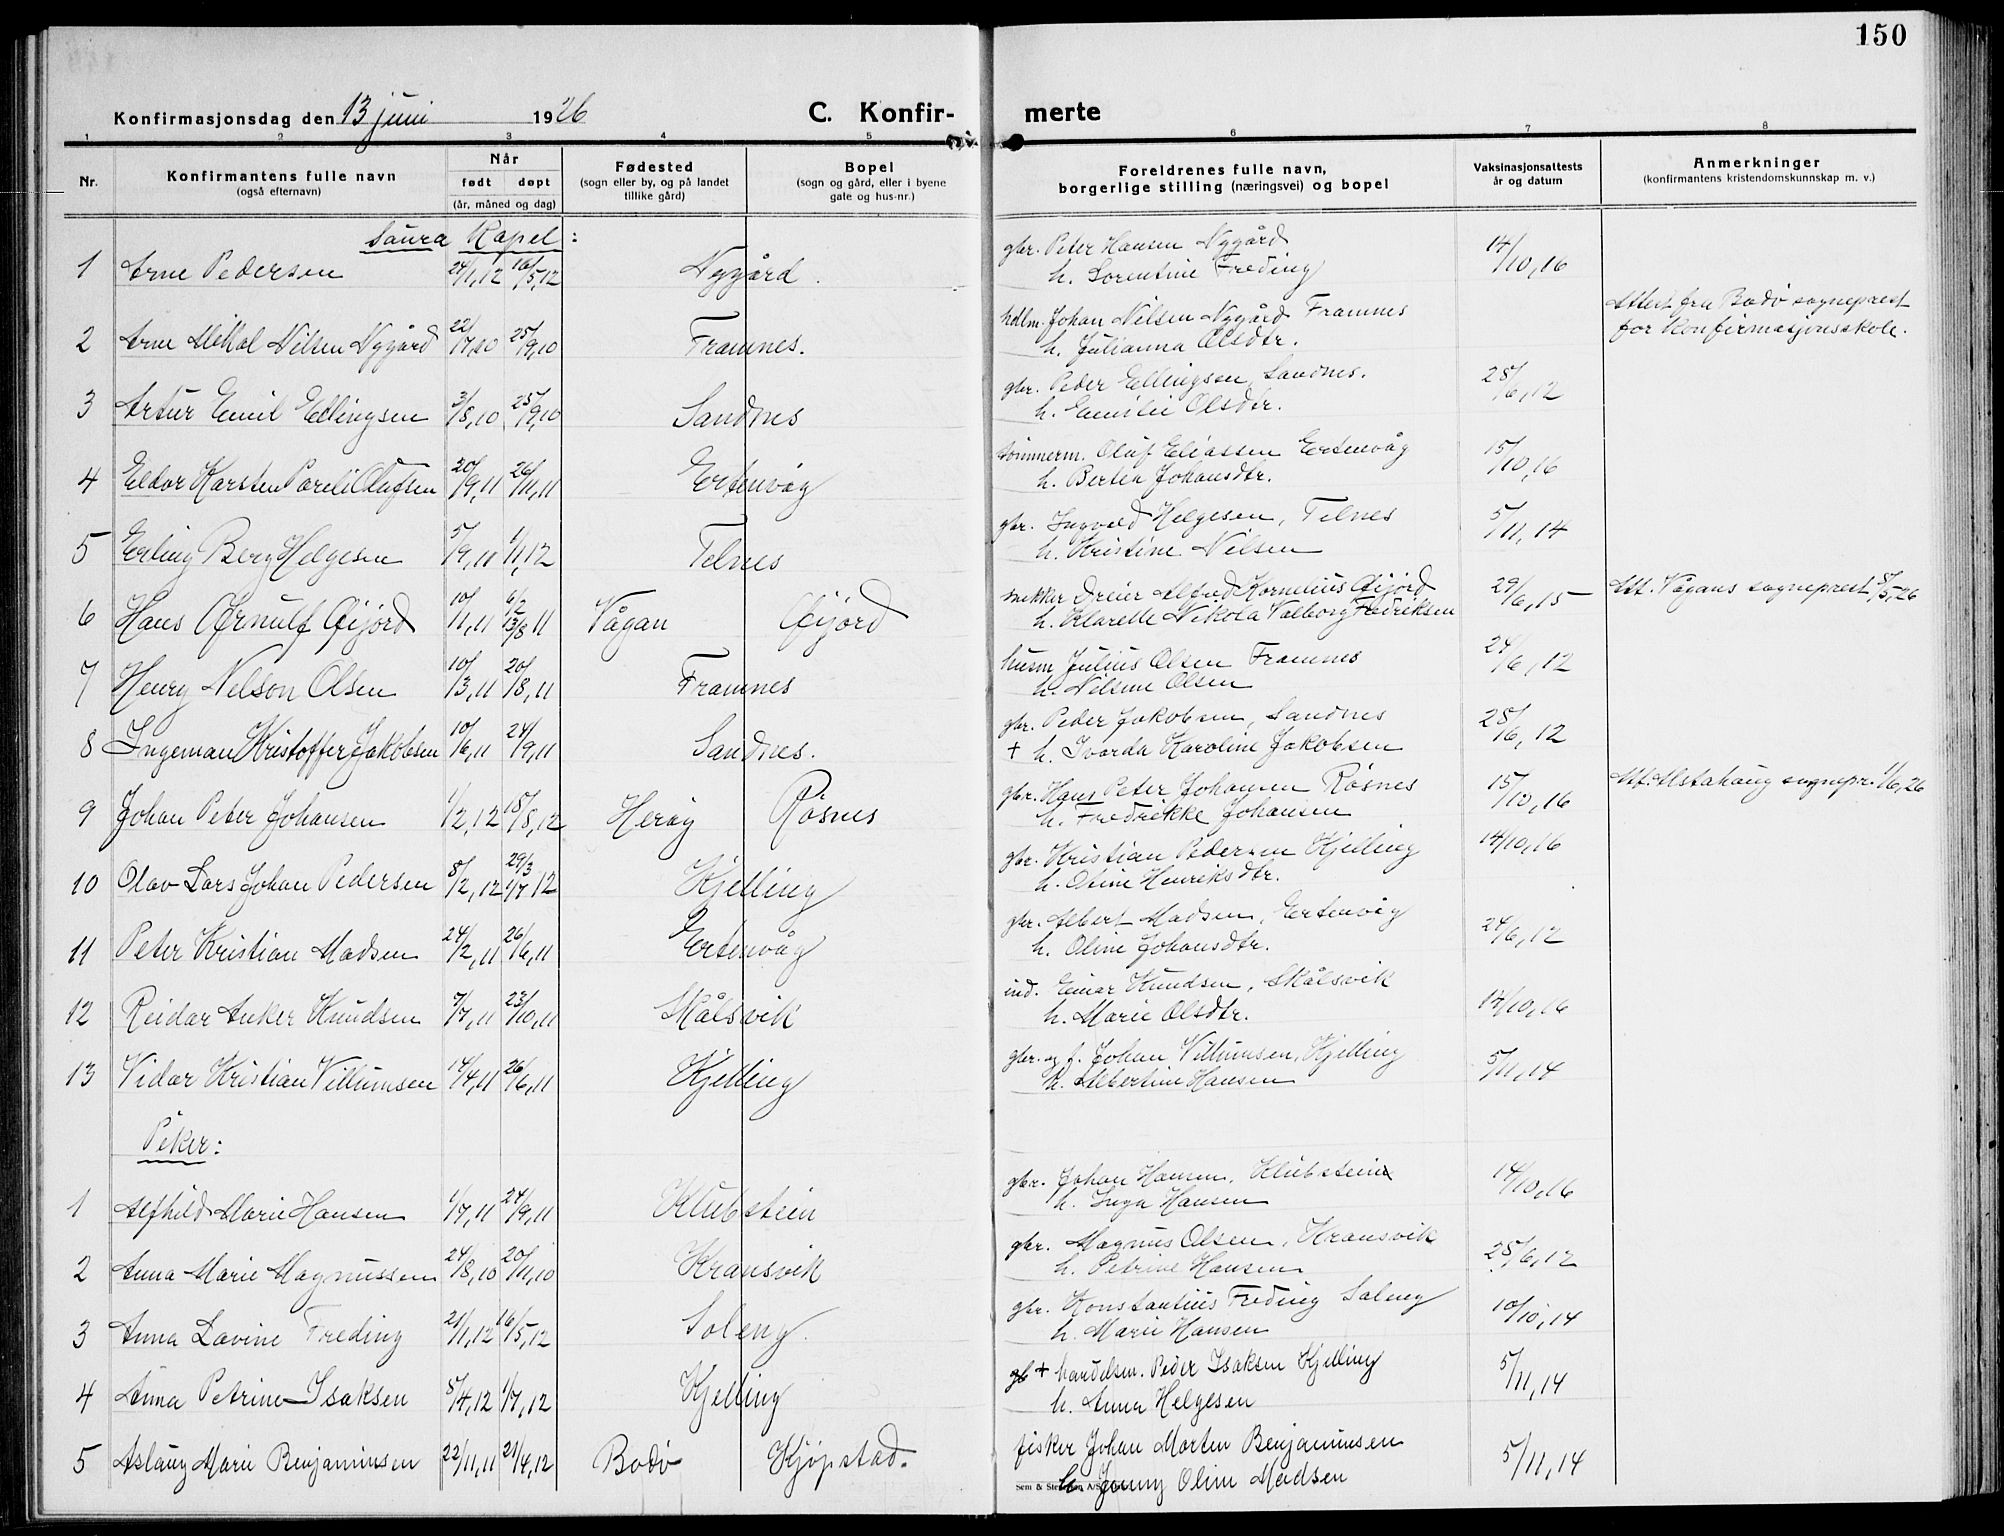 150
Konfirmasjonsdag den 13 juni 1926 C. Konfir- merte
1 2 3 4 5 6 7 8
Nr. Konfirmantens fulle navn (også efternavn) Når født døpt (år, måned og dag) Fødested (sogn eller by, og på landet tillike gård) Bopel (sogn og gård, eller i byene gate og hus-nr.) Foreldrenes fulle navn, borgerlige stilling (næringsvei) og bopel Vaksinasjonsattests år og datum Anmerkninger (konfirmantens kristendomskunnskap m. v.)
Saura Kapel:
1 Arne Pedersen 24/1,12 16/5,12 Nygård. gbr. Peter Hansen Nygård 14/10,16
h. Sorentine Freding
2 Arne Mikal Nilsen Nygård 22/7,10 25/9,10 Framnes. hdlm. Johan Nilsen Nygård Framnes Attest fra Bodø sogneprest
h. Julianna Olsdtr. for konfirmasjonsskole.
3 Artur Emil Ellingsen 3/8,10 25/9,10 Sandnes gbr. Peder Ellingsen, Sandnes. 25/6,12
h. Emilie Olsdtr.
4 Eldor Karsten Pareli Olufsen 20/9,11 26/11,11 Ertenvåg tømmerm. Oluf Eliassen Ertenvåg 15/10,16
h. Bertea Johansdtr.
5 Erling Berg Helgesen 5/9,11 1/1,12 Telnes gbr. Ingvald Helgesen, Telnes 5/11,14
h. Kristine Nilsen
6 Hans Ørnulf Øijord 10/1,11 6/2 13/8 11 Vågan Øijord snekker Dreier Alfred Kornelius Øijord 29/6,15 Att. Vågans sogneprest 8/5,26
h. Klarelle Nikola Valborg Fredriksen
7 Henry Nelson Olsen 10/3,11 20/8,11 Framnes husm. Julius Olsen Framnes 24/6,12
h. Nilsine Olsen
8 Ingeman Kristoffer Jakobsen 10/6,11 24/9,11 Sandnes. gbr. Peder Jakobsen, Sandnes 25/6,12
+ h. Ivarda Karoline Jakobsen
9 Johan Peter Johansen 1/2,12 18/8,12 Herøy Røsnes gbr. Hans Peter Johansen Røsnes 15/10,16 Att. Alstahaug sognepr. 1/6,26
h. Fredrikke Johansen
10 Olav Lars Johan Pedersen 8/2,12 29/3 1/7,12 Kjelling gbr. Kristian Pedersen Kjelling 14/10,16
h. Oline Henriksdtr.
11 Peter Kristian Madsen 24/2,11 26/6,11 Ertenvåg gbr. Albert Madsen, Ertenvåg 24/6,12
h. Oline Johansdtr.
12 Reidar Anker Knudsen 7/7,11 23/10,11 Skålsvik ind. Einar Knudsen, Skålsvik 14/10,16
h. Marie Olsdtr.
13 Vidar Kristian Villumsen 14/4,11 26/6,11 Kjelling gbr. og f. Johan Villumsen, Kjelling 5/11,14
h. Albertine Hansen
Piker:
1 Alfhild Marie Hansen 1/7,11 24/9,11 Klubstein gbr. Johan Hansen, Klubstein 14/10,16
h. Inga Hansen
2 Anna Marie Magnussen 24/8,10 20/11,10 Kransvik gbr. Magnus Olsen, Kransvik 25/6,12
h. Petrine Hansen
3 Anna Lavine Freding 21/1,12 16/5,12 Soleng. gbr. Konstantius Freding Soleng 10/10,14
h. Marie Hansen
4 Anna Petrine Isaksen 5/4,12 1/7,12 Kjelling + handelsm. Peder Isaksen Kjelling 5/11,14
h. Anna Helgesen
5 Aslaug Marie Benjaminsen 22/11,11 21/4,12 Bodø Kjøpstad. fisker Johan Morten Benjaminsen 5/11,14
h. Jenny Oline Madsen